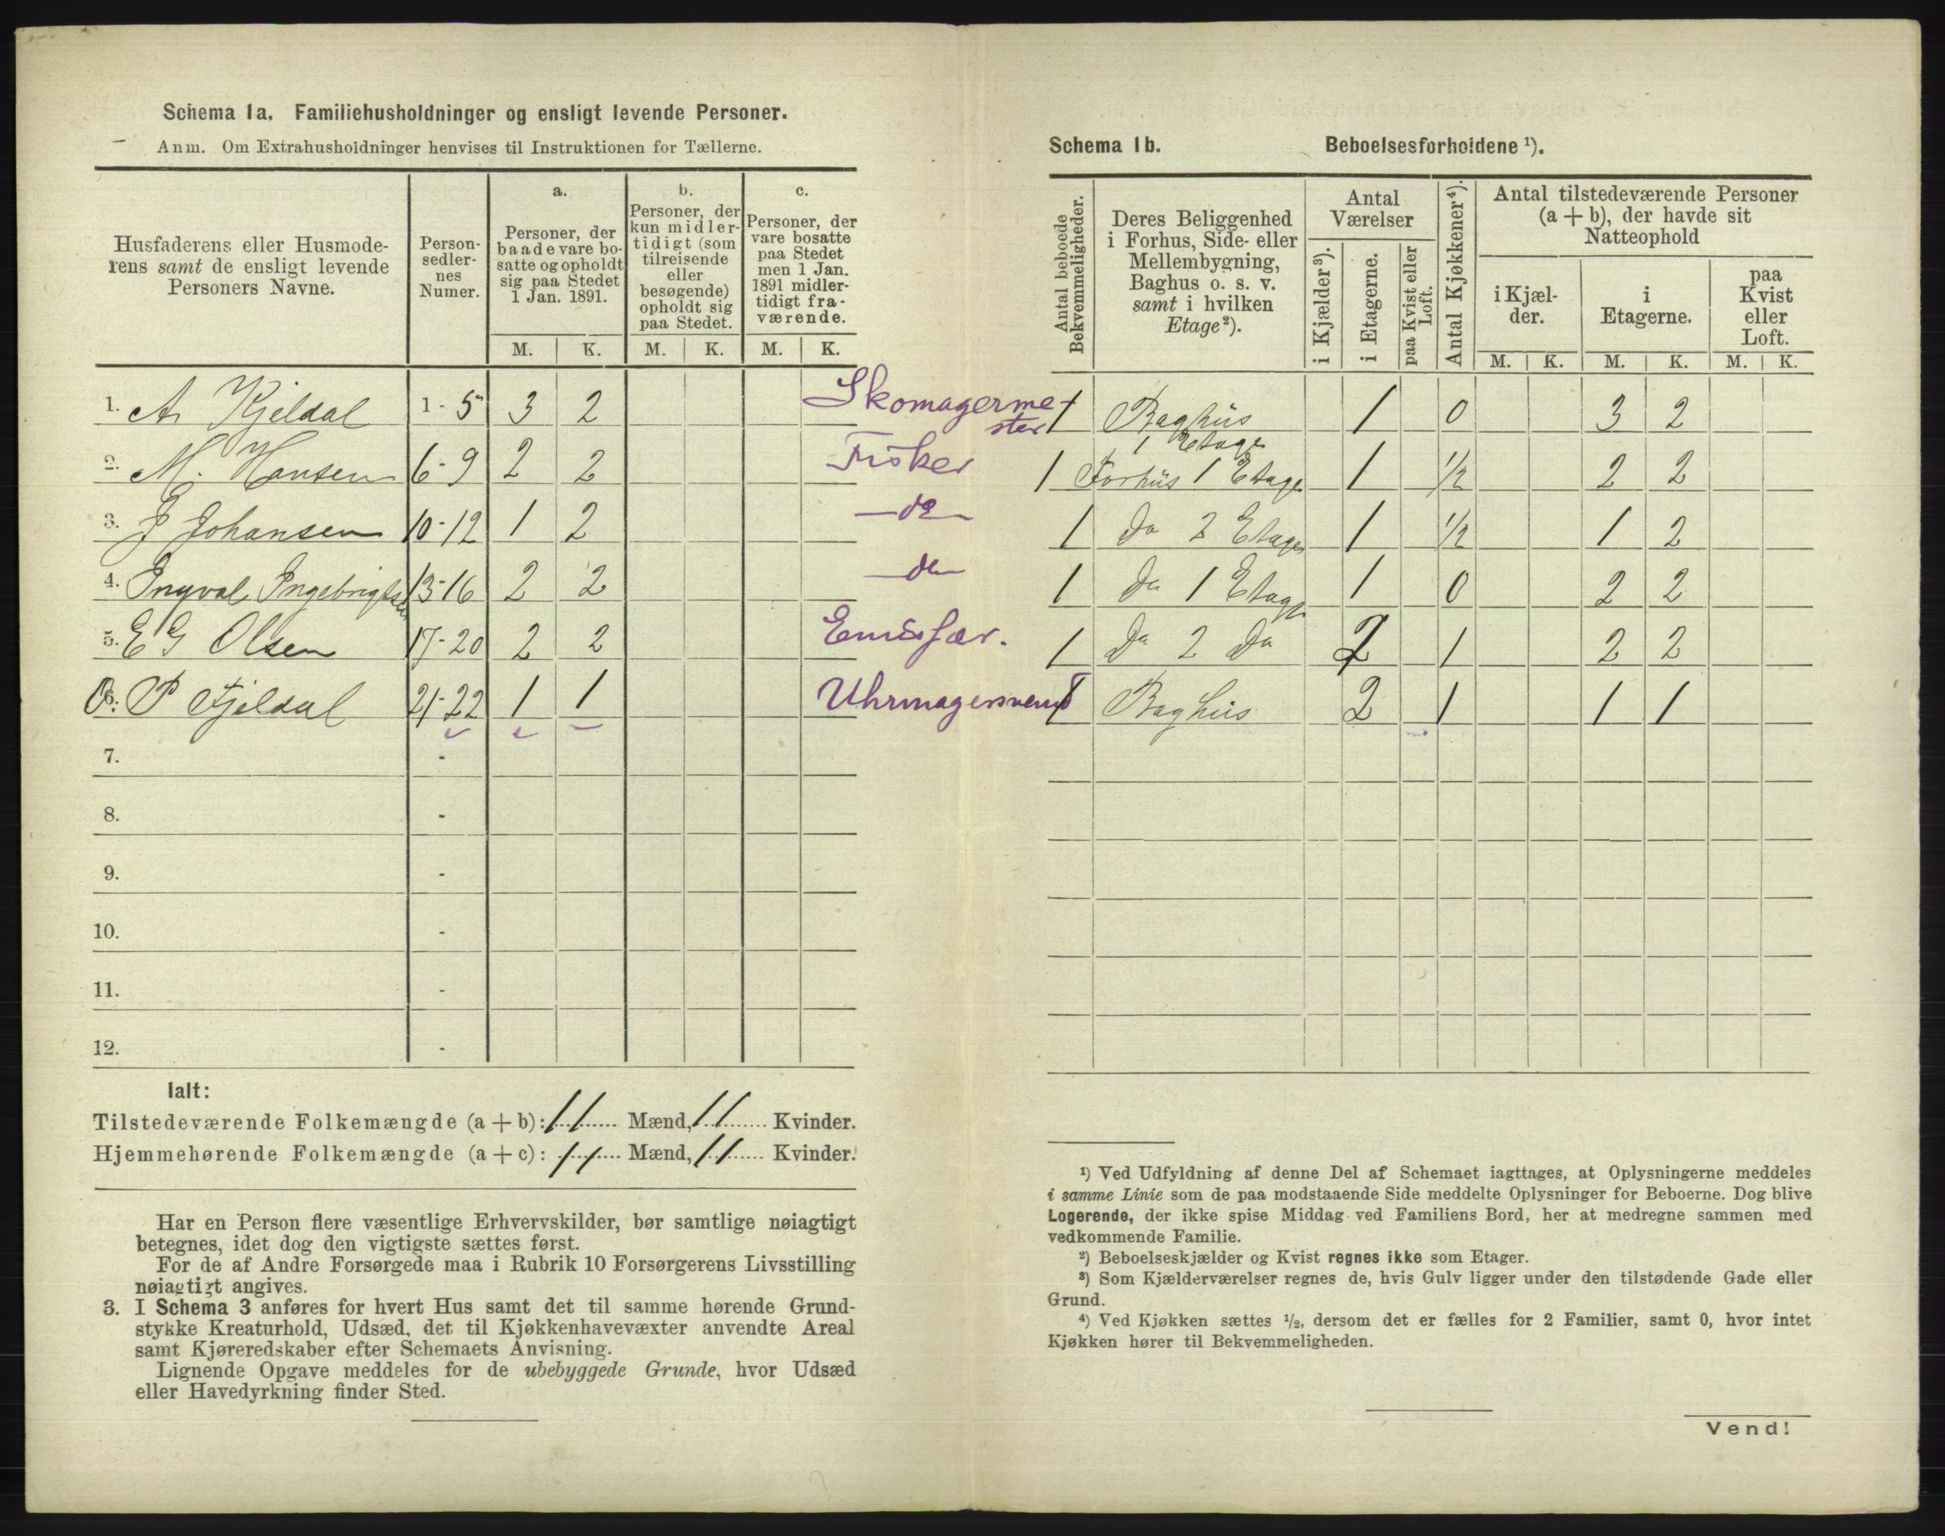 Schema 1a. Familiehusholdninger og ensligt levende Personer.
Anm. Om Extrahusholdninger henvises til Instruktionen for Tællerne.
Husfaderens eller Husmoderens samt de ensligt levende Personers Navne.
Personsedlernes Numer.
a. Personer, der baade vare bosatte og opholdt sig paa Stedet 1 Jan. 1891.
b. Personer, der kun midlertidigt (som tilreisende eller besøgende) opholdt sig paa Stedet.
c. Personer, der vare bosatte paa Stedet men 1 Jan. 1891 midlertidigt fraværende.
M. K. M. K. M. K.
1. A. Kjeldal 1 - 5 3 2 Skomagermester
2. M. Hansen 6 - 9 2 2 Fisker
3. J Johansen 10 - 12 1 2 do
4. Ingval Ingebrigtsen 13 - 16 2 2 do
5. E G Olsen 17 - 20 2 2 Emissær.
6. P Fjeldal 21 - 22 1 1 Uhrmagersvend
7. -
8. -
9. -
10. -
11. -
12. -
Ialt:
Tilstedeværende Folkemængde (a + b): 11 Mænd, 11 Kvinder.
Hjemmehørende Folkemængde (a + c): 11 Mænd, 11 Kvinder.
Har en Person flere væsentlige Erhvervskilder, bør samtlige nøiagtigt
betegnes, idet dog den vigtigste sættes først.
For de af Andre Forsørgede maa i Rubrik 10 Forsørgerens Livsstilling
nøiagtigt angives.
3. I Schema 3 anføres for hvert Hus samt det til samme hørende Grund-
stykke Kreaturhold, Udsæd, det til Kjøkkenhavevæxter anvendte Areal
samt Kjøreredskaber efter Schemaets Anvisning.
Lignende Opgave meddeles for de ubebyggede Grunde, hvor Udsæd
eller Havedyrkning finder Sted.
Schema 1b. Beboelsesforholdene ¹).
Antal beboede Bekvemmeligheder.
Deres Beliggenhed i Forhus, Side- eller Mellembygning, Baghus o. s. v. samt i hvilken Etage ²).
Antal Værelser
i Kjælder ³).
i Etagerne.
paa Kvist eller Loft.
Antal Kjøkkener ⁴).
Antal tilstedeværende Personer (a + b), der havde sit Natteophold
i Kjælder.
i Etagerne.
paa Kvist eller Loft.
M. K. M. K. M. K.
1 Baghus 1 Etage 1 0 3 2
1 Forhus 1 Etage 1 1/2 2 2
1 Do 2 Etage 1 1/2 1 2
1 Do 1 Etage 1 0 2 2
1 Do 2 Do 2 1 2 2
1 Baghus 2 1 1 1
¹) Ved Udfyldning af denne Del af Schemaet iagttages, at Oplysningerne meddeles
i samme Linie som de paa modstaaende Side meddelte Oplysninger for Beboerne. Dog blive
Logerende, der ikke spise Middag ved Familiens Bord, her at medregne sammen med
vedkommende Familie.
²) Beboelseskjælder og Kvist regnes ikke som Etager.
³) Som Kjælderværelser regnes de, hvis Gulv ligger under den tilstødende Gade eller
Grund.
⁴) Ved Kjøkken sættes ½, dersom det er fælles for 2 Familier, samt 0, hvor intet
Kjøkken hører til Bekvemmeligheden.
Vend!